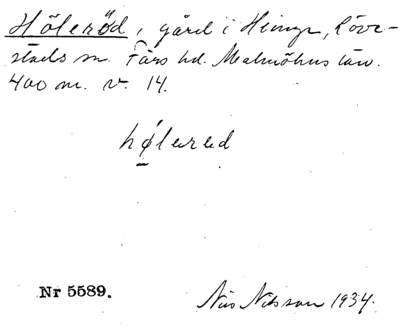 Höleröd, gård i Heinge, Löve-
stads sn. Färs hd. Malmöhus län.
400 m. v. 14.
hø̄lered
Nr 5589.
Nils Nilsson 1934.